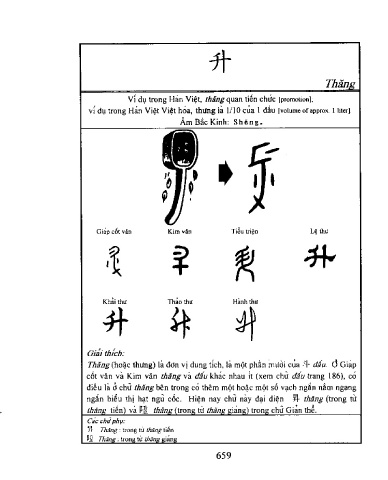 升
Thăng
Ví dụ trong Hán Việt, thăng quan tiến chức [promotion],
ví dụ trong Hán Việt Việt hóa, thưng là 1/10 của 1 đấu [volume of approx. 1 liter]
Âm Bắc Kinh: Shēng.
Giáp cốt văn Kim văn Tiểu triện Lệ thư
升
Khải thư Thảo thư Hành thư
升
Giải thích:
Thăng (hoặc thưng) là đơn vị dung tích, là một phần mười của 斗 đấu. Ở Giáp
cốt văn và Kim văn thăng và đấu khác nhau ít (xem chữ đấu trang 186), có
điều là ở chữ thăng bên trong có thêm một hoặc một số vạch ngắn nằm ngang
ngắn biểu thị hạt ngũ cốc. Hiện nay chữ này đại diện 昇 thăng (trong từ
thăng tiến) và 陞 thăng (trong từ thăng giáng) trong chữ Giản thể.
Các chữ phụ:
昇 Thăng : trong từ thăng tiến
陞 Thăng : trong từ thăng giáng
659